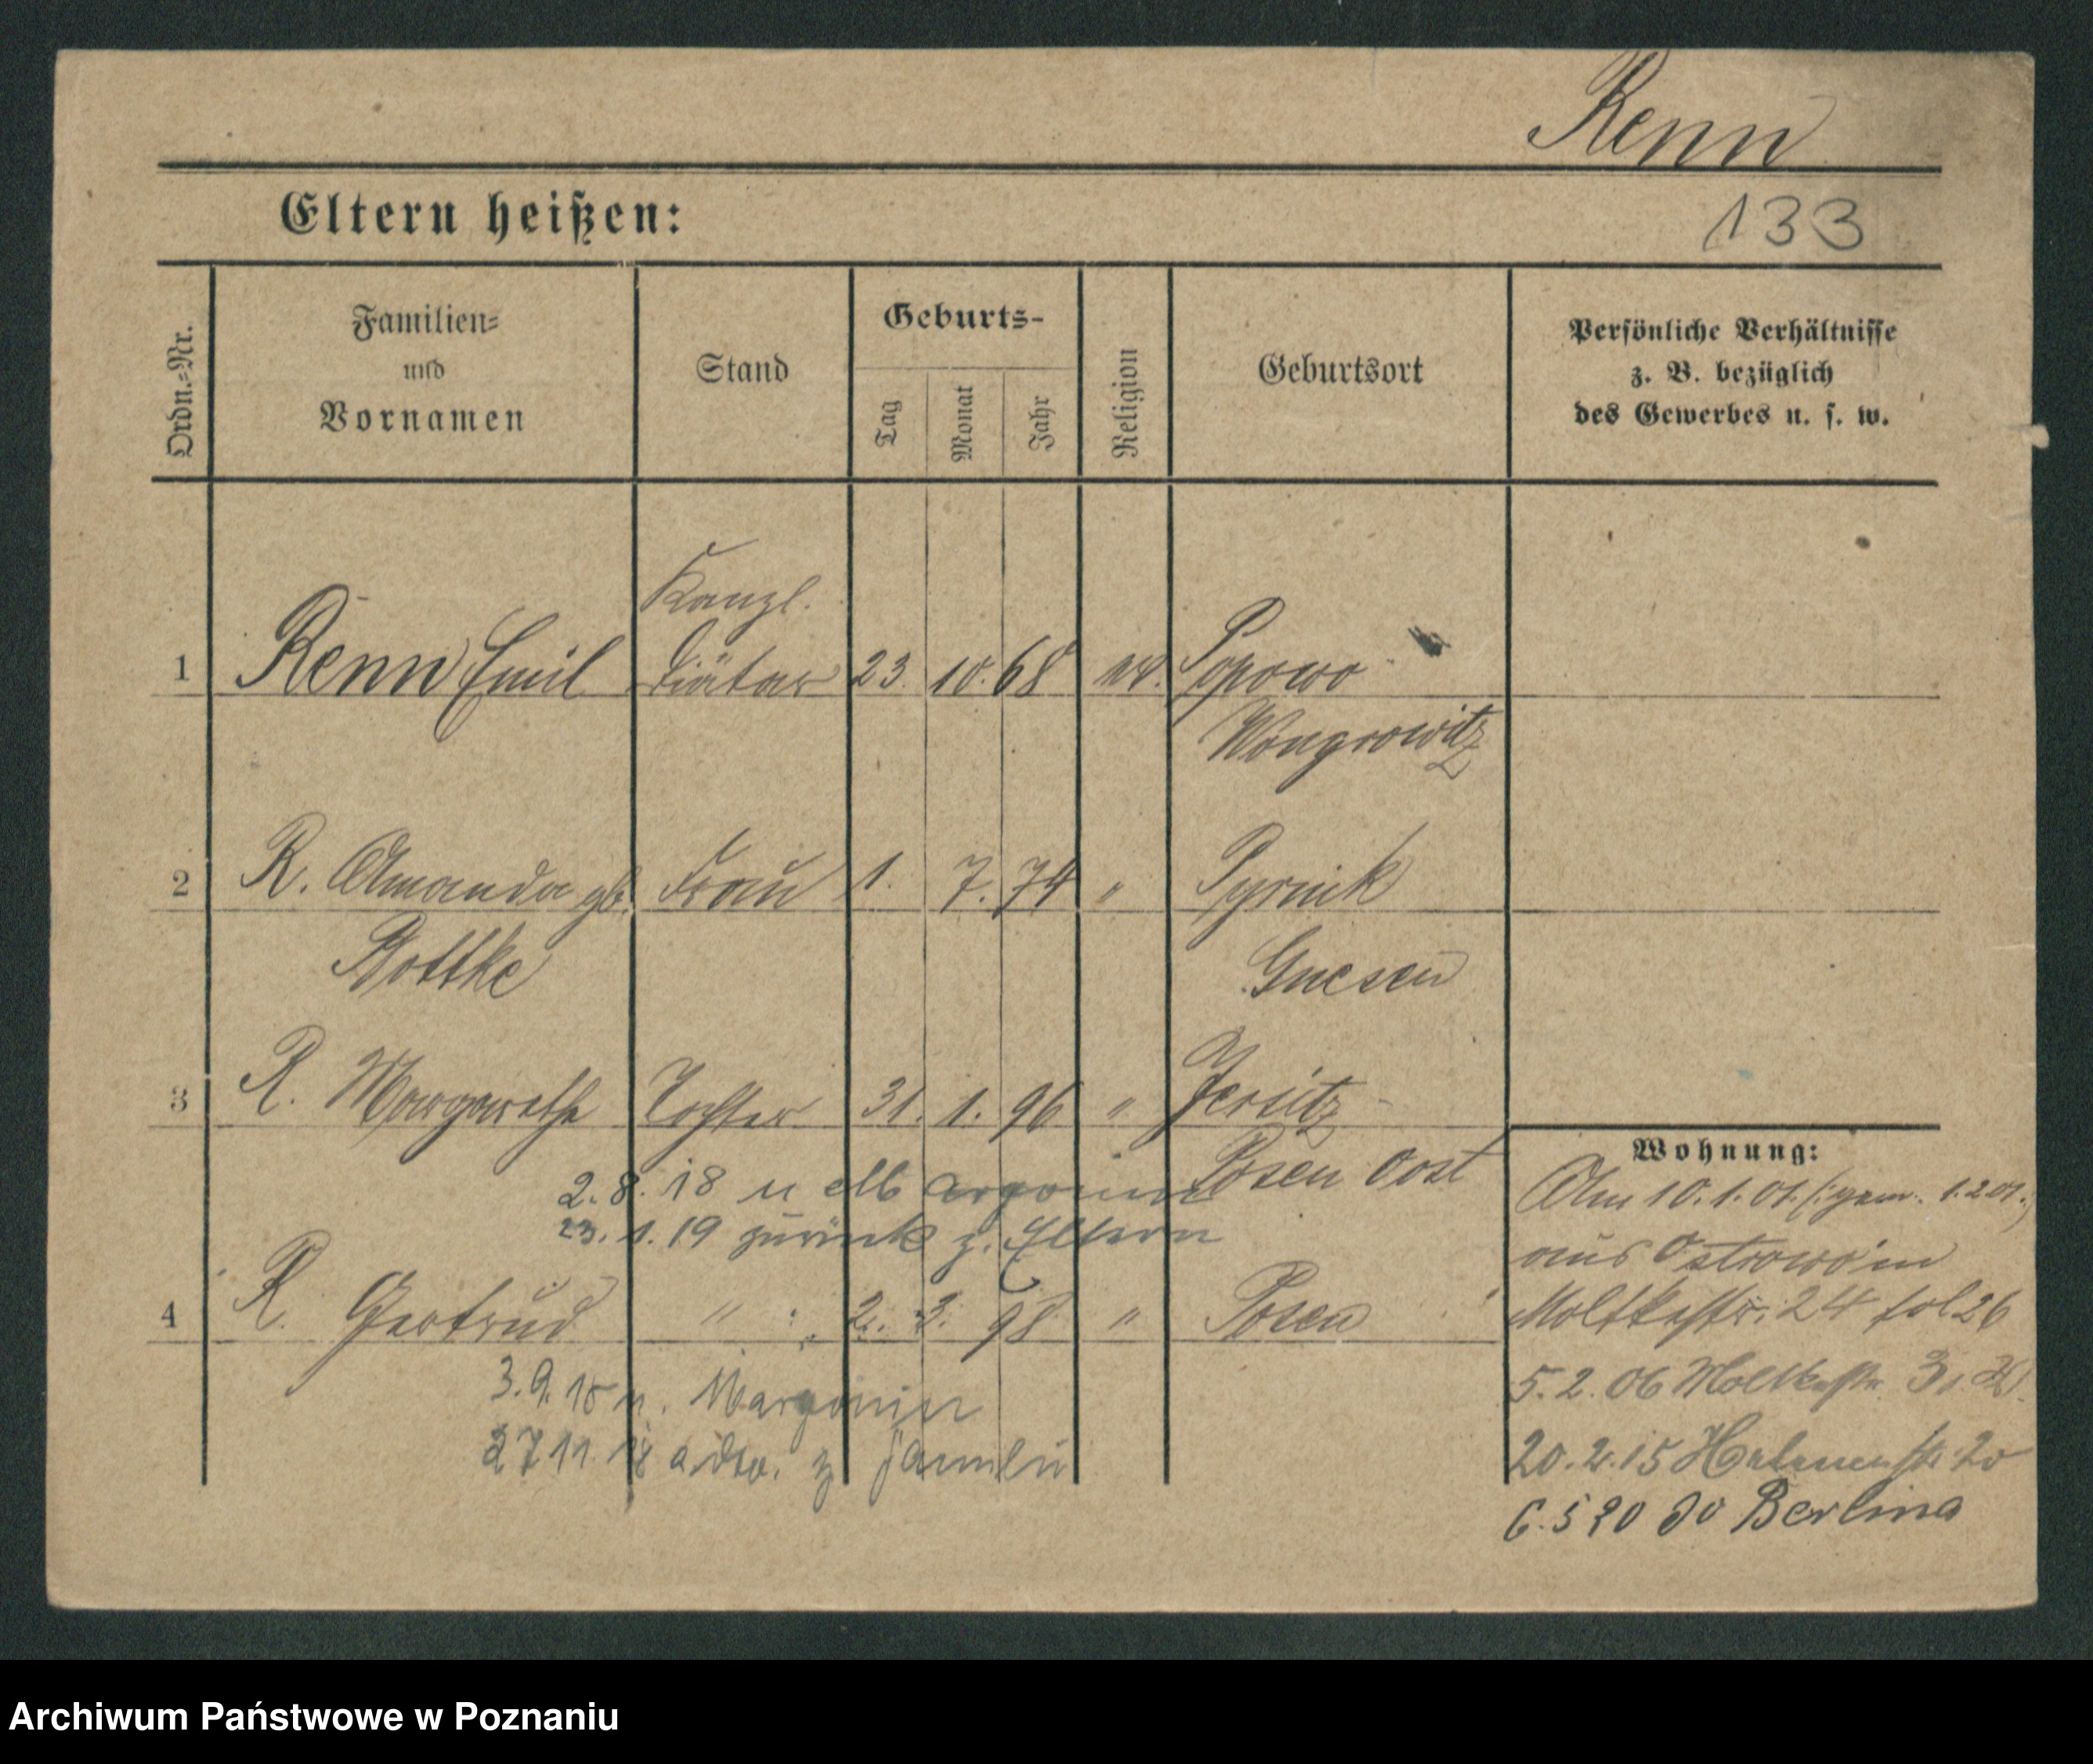 Renn
Eltern heißen:
133
Ordn.=Nr.
Familien=
und
Vornamen
Stand
Geburts-
Tag
Monat
Jahr
Religion
Geburtsort
Persönliche Verhältnisse
z. B. bezüglich
des Gewerbes u. s. w.
Kanzl.
1 Renn Emil Diätar 23. 10. 68 ev. Popowo
Wongrowitz
2 R. Amanda gb. Frau 1. 7. 74 " 
Gnesen
3 R. Margarethe Tochter 31. 1. 96 " Jersitz
Posen Oost
2. 8. 18 n
23. 1. 19 zurück z. Eltern
4 R. Gertrud " 2. 3. 98 " Posen
3. 9. 18 n. Margonin
27 11. 18 z Familie
Wohnung:
Am 10. 1. 01. (: gem. 1. 2 01. :)
aus Ostrowo in
Moltkestr. 24 fol 26
5. 2. 06 Moltkestr.
20. 2. 15
6. 5 20 do Berlina
Archiwum Państwowe w Poznaniu